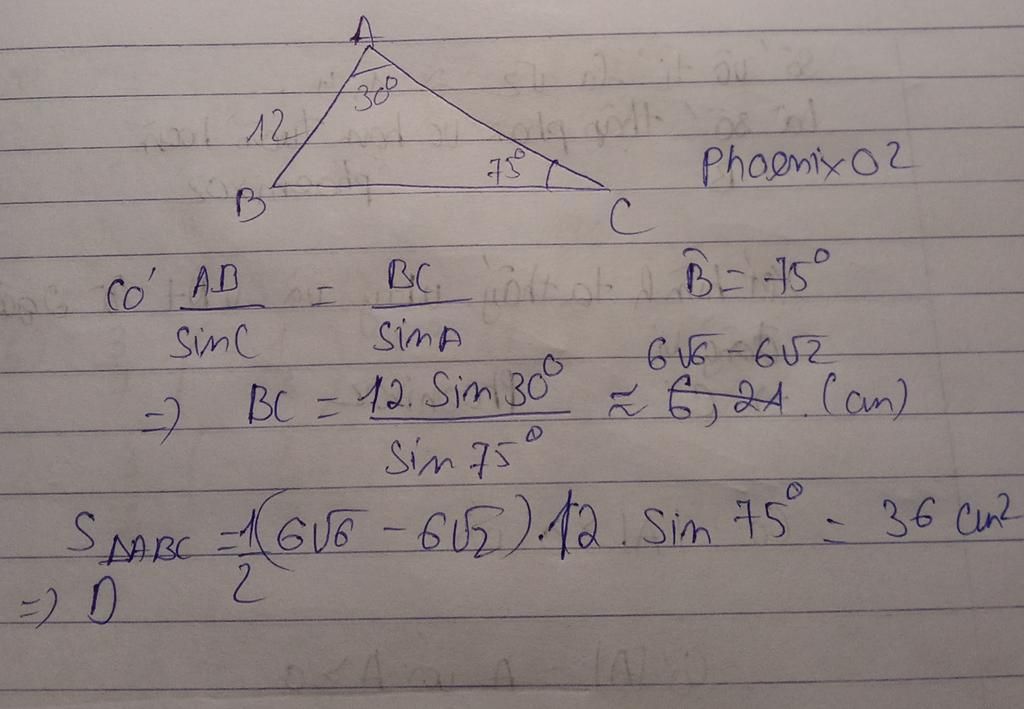 A
30°
12
75°
B
C
Phoenix02
Có AB/SinC = BC/SinA
B̂ = 75°
=) BC = 12.Sin30°/Sin75° ≈ 6√6 - 6√2 (cm)
S△ABC = 1/2(6√6 - 6√2).12.Sin75° = 36 cm²
=) D